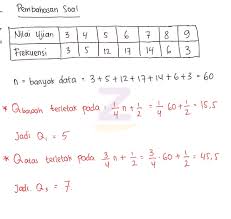 Pembahasan Soal
Nilai Ujian 3 4 5 6 7 8 9
Frekuensi 3 5 12 17 14 6 3
n = banyak data = 3+5+12+17+14+6+3 = 60
* Qbawah terletak pada : 1/4 n + 1/2 = 1/4 60 + 1/2 = 15,5
Jadi Q₁ = 5
* Qatas terletak pada 3/4 n + 1/2 = 3/4 · 60 + 1/2 = 45,5
Jadi Q₃ = 7